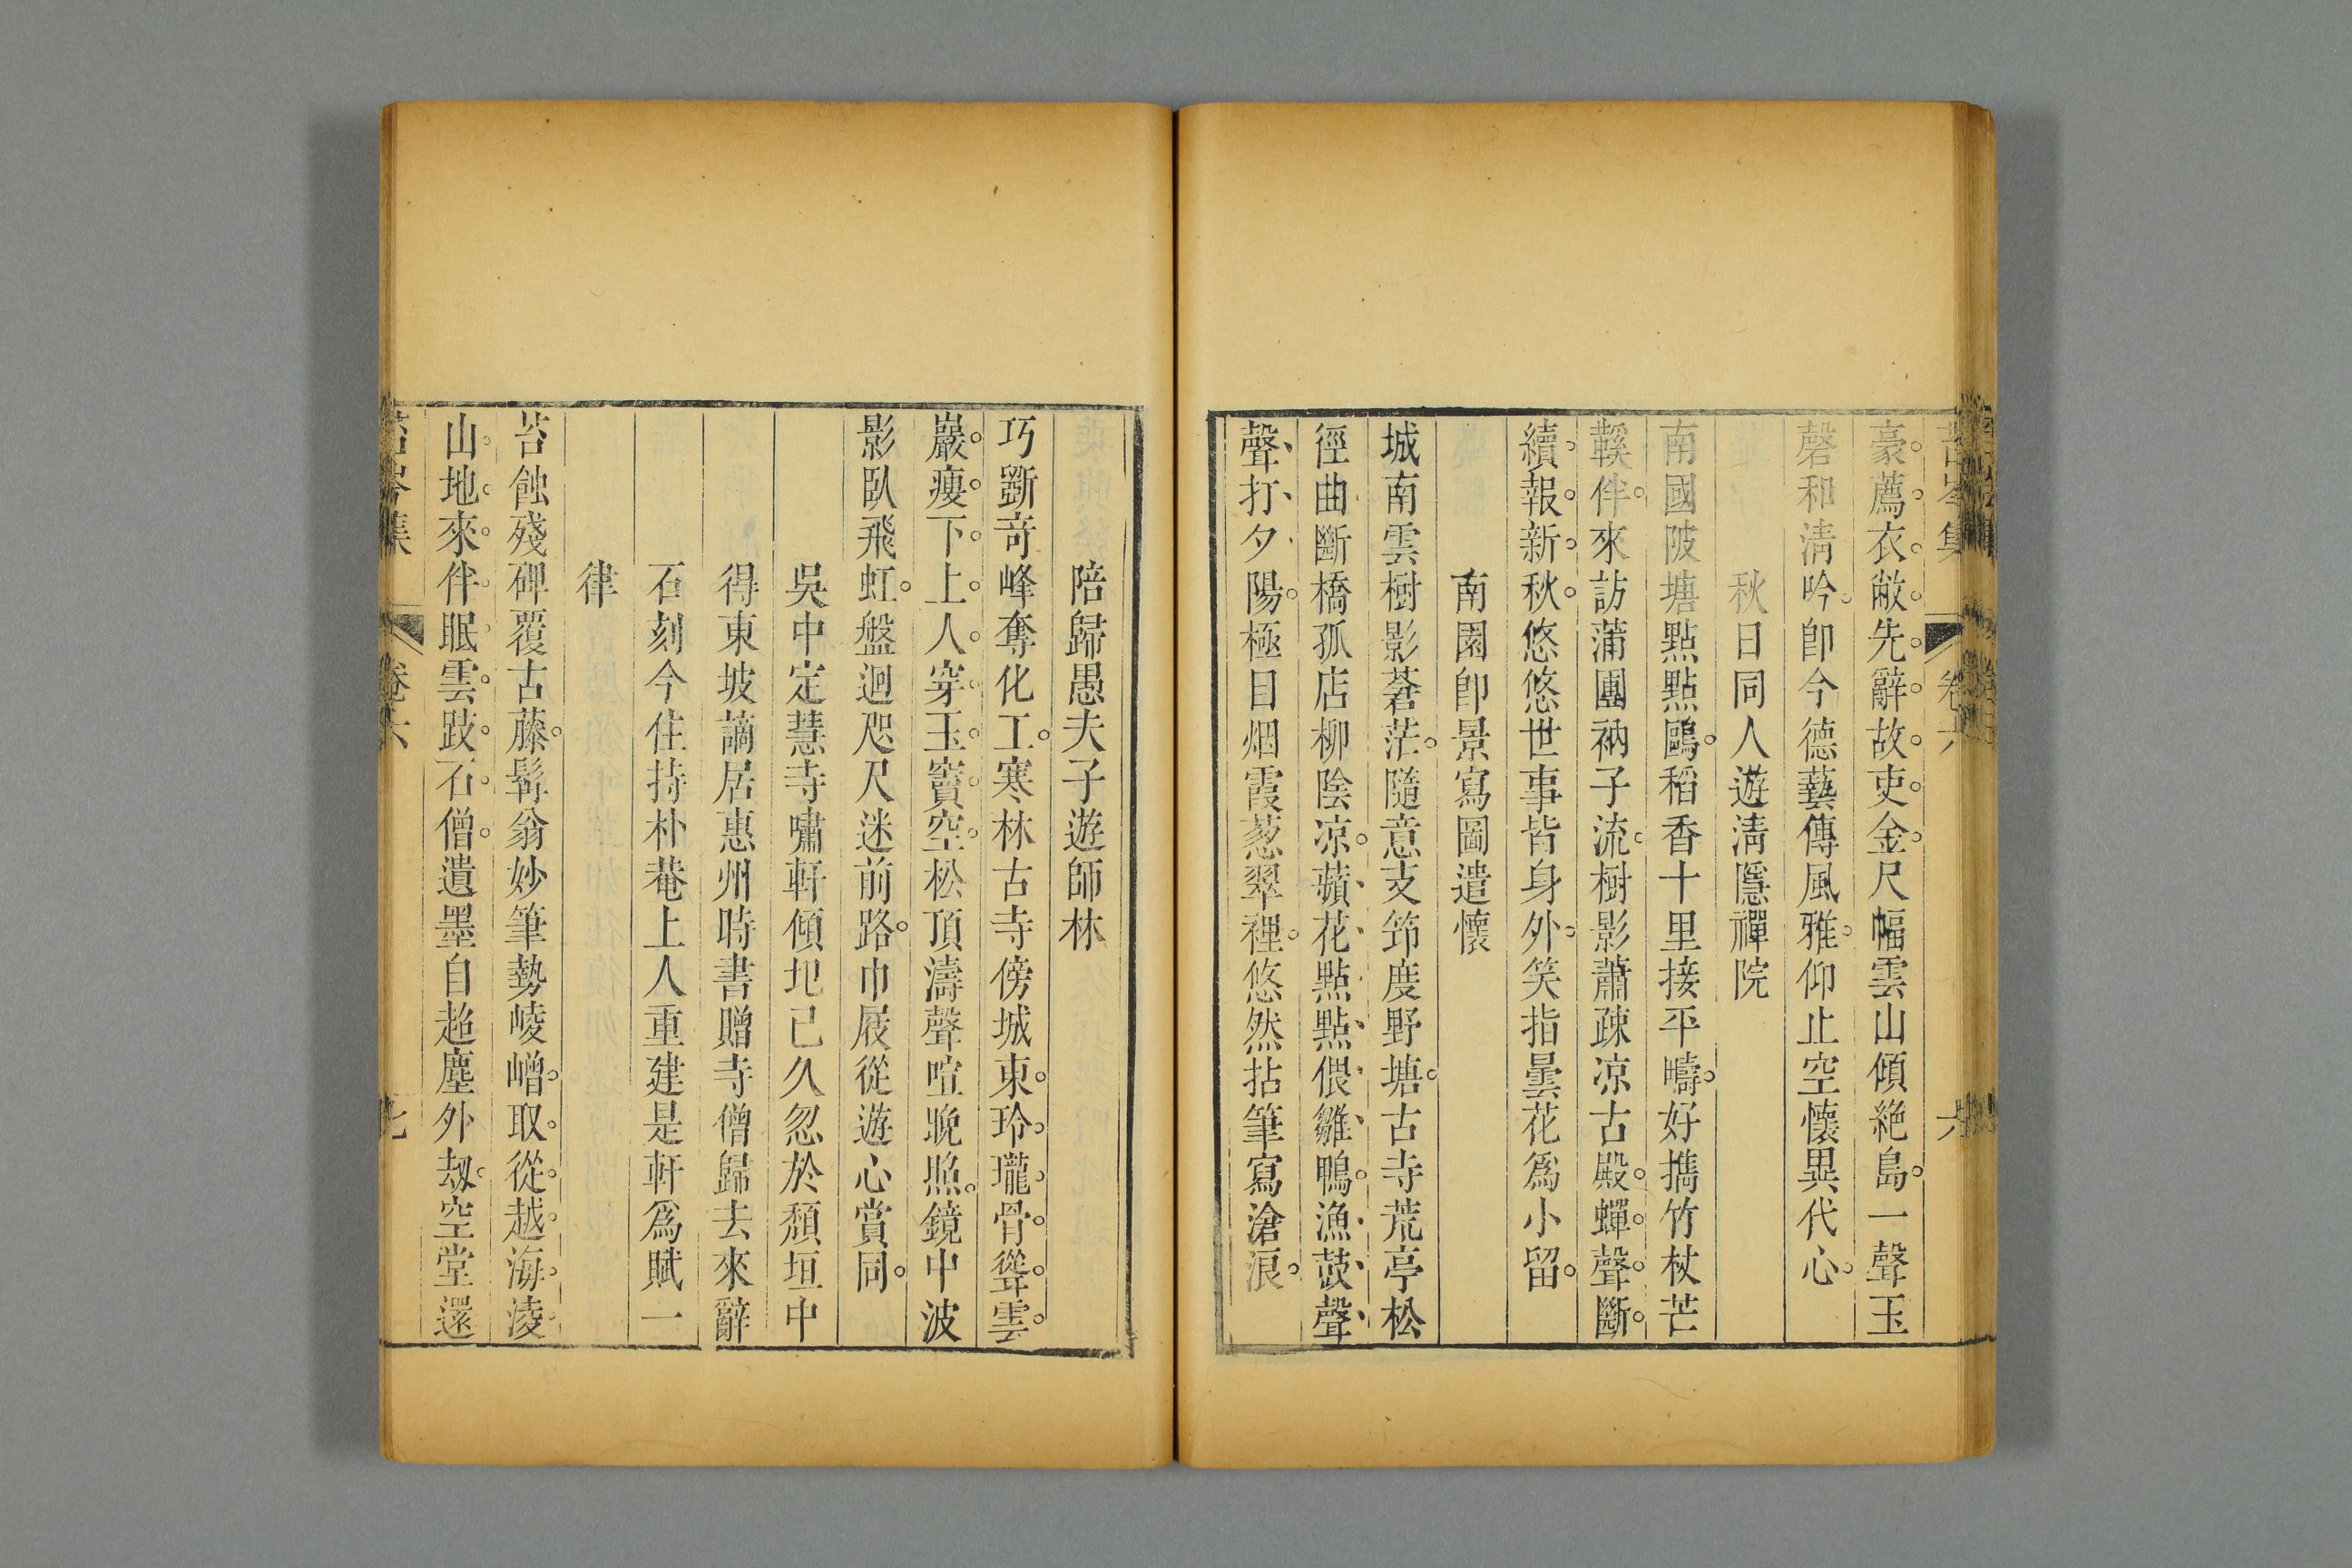 豪薦衣敝先辭故吏金尺幅雲山傾絶島一聲玉
磬和淸吟卽今德藝傳風雅仰止空懷異代心
秋日同人遊淸隱禪院
南國陂塘點點鷗稻香十里接平疇好携竹杖芒
鞵伴來訪蒲團衲子流樹影蕭疎凉古殿蟬聲斷
續報新秋悠悠世事皆身外笑指曇花爲小留
南園卽景寫圖遣懷
城南雲樹影蒼茫隨意支筇度野塘古寺荒亭松
徑曲斷橋孤店柳陰凉蘋花點點偎雛鴨漁鼓聲
聲打夕陽極目烟霞葱翠裡悠然拈筆寫滄浪
卷六
六
陪歸愚夫子遊師林
巧斵竒峰奪化工寒林古寺傍城東玲瓏骨聳雲
巖瘦下上人穿玉竇空松頂濤聲喧晚照鏡中波
影臥飛虹盤迴咫尺迷前路巾屐從遊心賞同
吳中定慧寺嘯軒傾圯已久忽於頽垣中
得東坡謫居惠州時書贈寺僧歸去來辭
石刻今住持朴菴上人重建是軒爲賦一
律
苔蝕殘碑覆古藤髯翁妙筆勢崚嶒取從越海淩
山地來伴眠雲跂石僧遺墨自超塵外刼空堂還
卷六
七